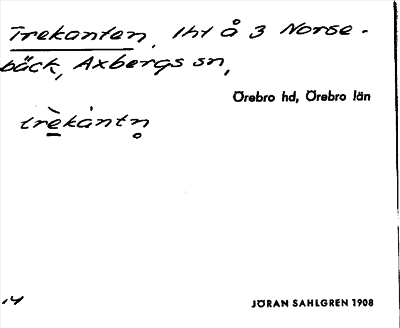 Trekanten, lht å 3 Norse-
bäck, Axbergs sn,
Örebro hd, Örebro län
trèkántn̥
14
JÖRAN SAHLGREN 1908